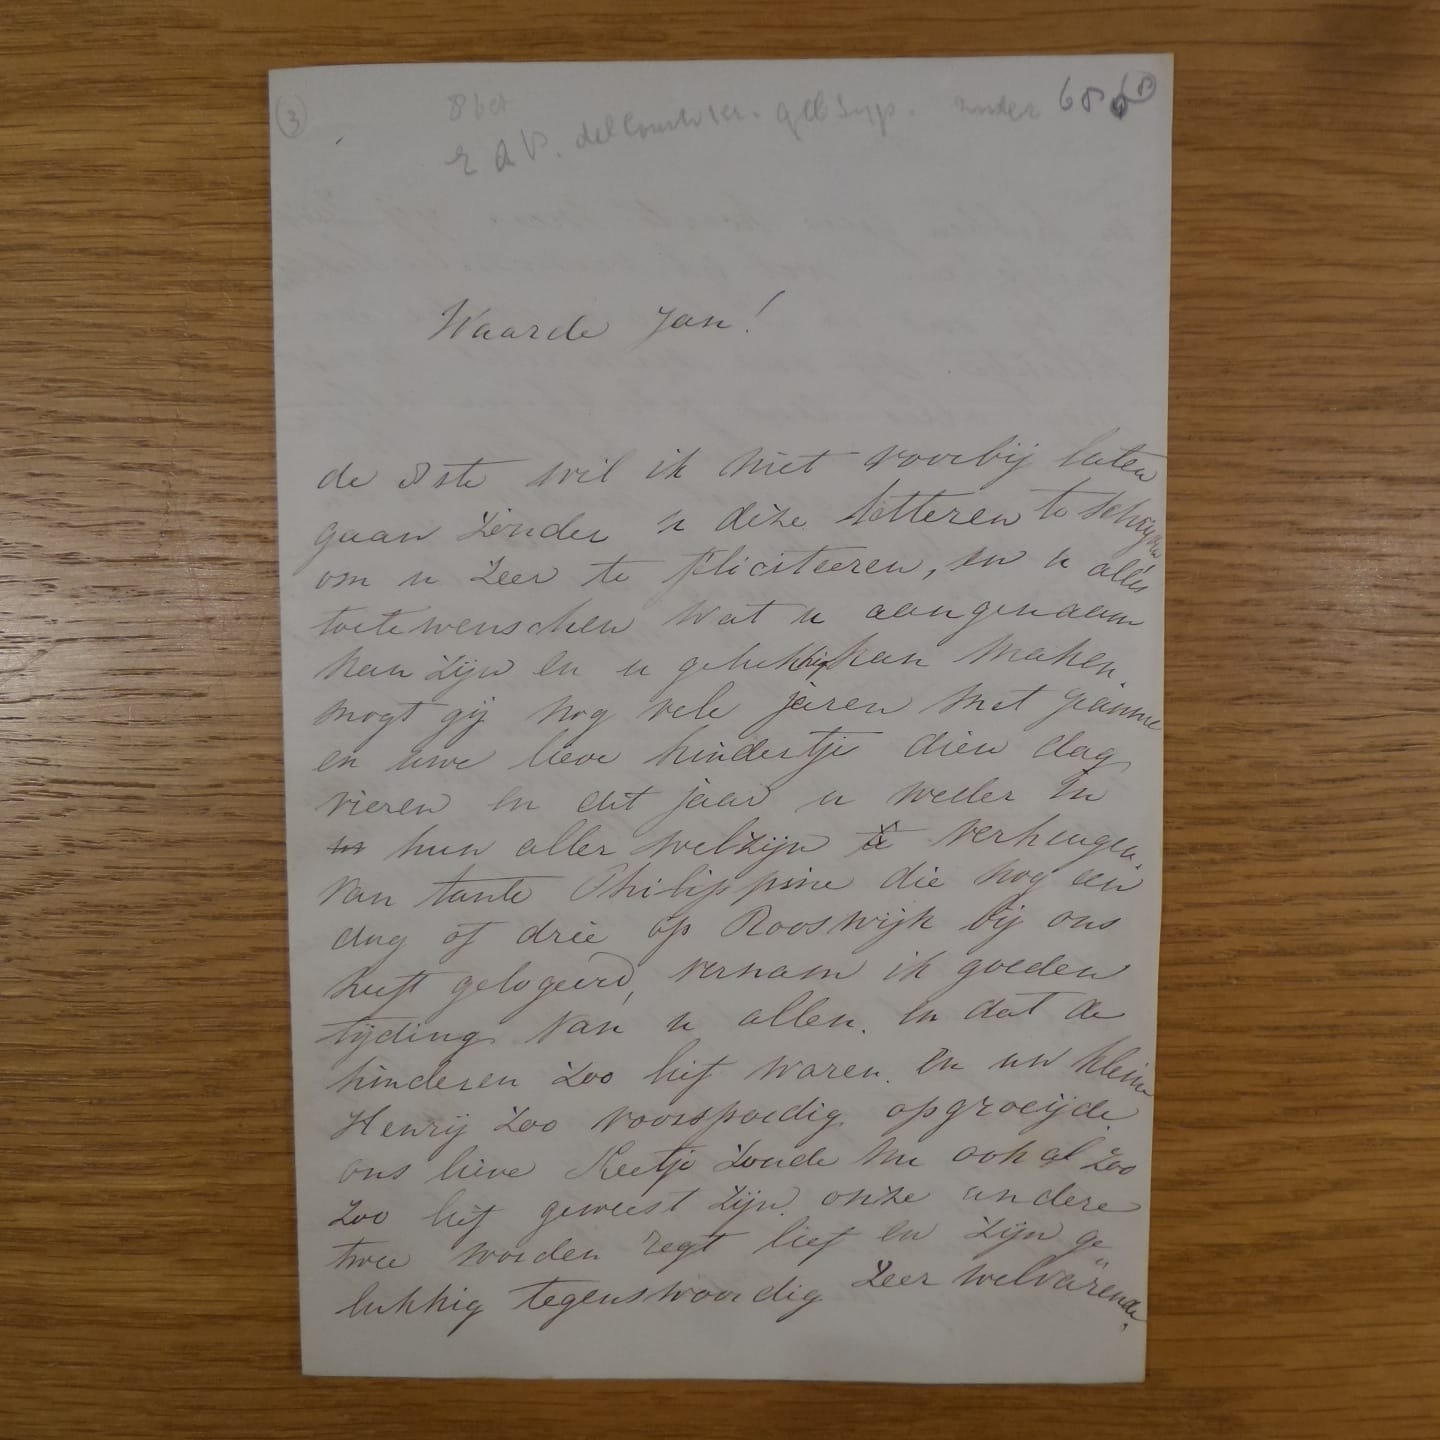 (3)
8 oct
Waarde Jan!
de 8ste wil ik niet voorbij laten
gaan zonder u deze letteren te schrijven
om u zeer te feliciteeren, en u alles
toetewenschen wat u aangenaam
kan zijn en u gelukkig kan maken.
mogt gij nog vele jaren met
en uwe lieve kindertje dien dag
vieren en dit jaar u weder in
hun aller welzijn te verheugen.
van tante Philippine die nog een
dag of drie op Rooswijk bij ons
heeft gelogeerd, vernam ik goeden
tijding van u allen. en dat de
kinderen zoo lief waren. en uw kleine
Henrij zoo voorspoedig opgroeijde.
ons lieve Keetje zoude nu ook al zoo
zoo lief geweest zijn. onze andere
twee worden regt lief en zijn ge
lukkig tegenswoordig zeer welvarende.